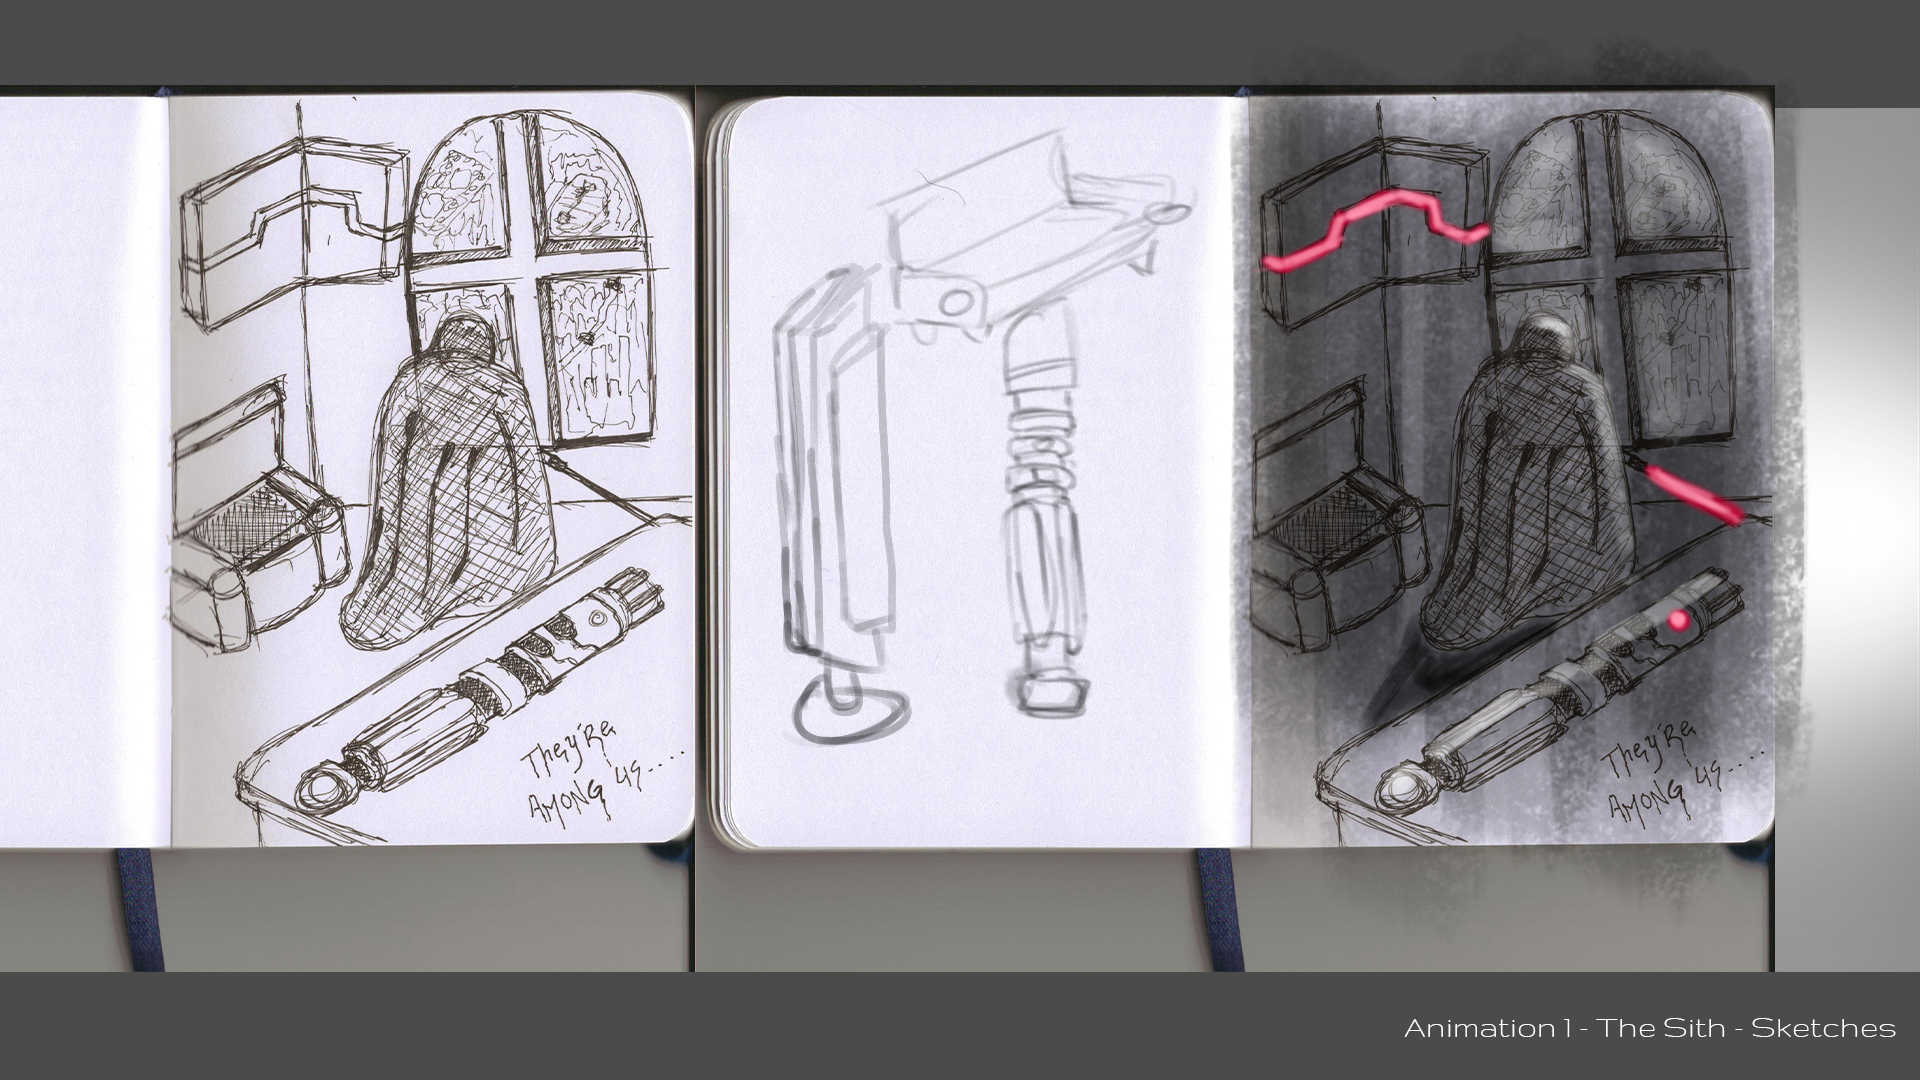 They're
AMONG us....
They're
AMONG us....
Animation 1 - The Sith - Sketches